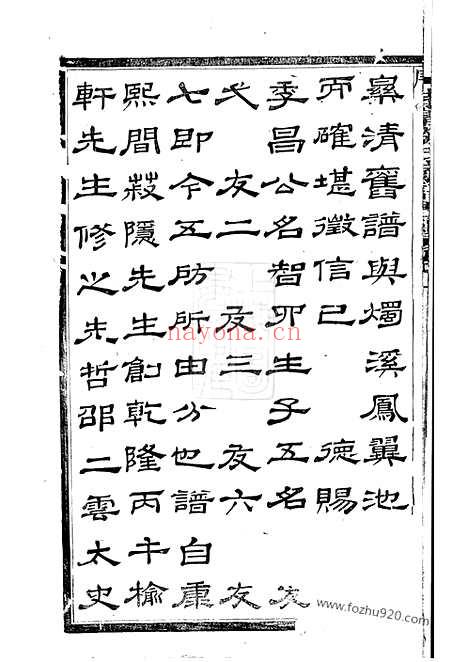 清舊譜與燭溪鳳翼池
而確堪徵信已 德賜
季昌公名智卯生子五名 友
弌 友二 友三 友六 友
七即今五房所由分也譜自康
熙間菽隱先生創乾隆丙午榆
軒先生修之先哲邵二雲太史
nayona.cn
www.fozhu920.com